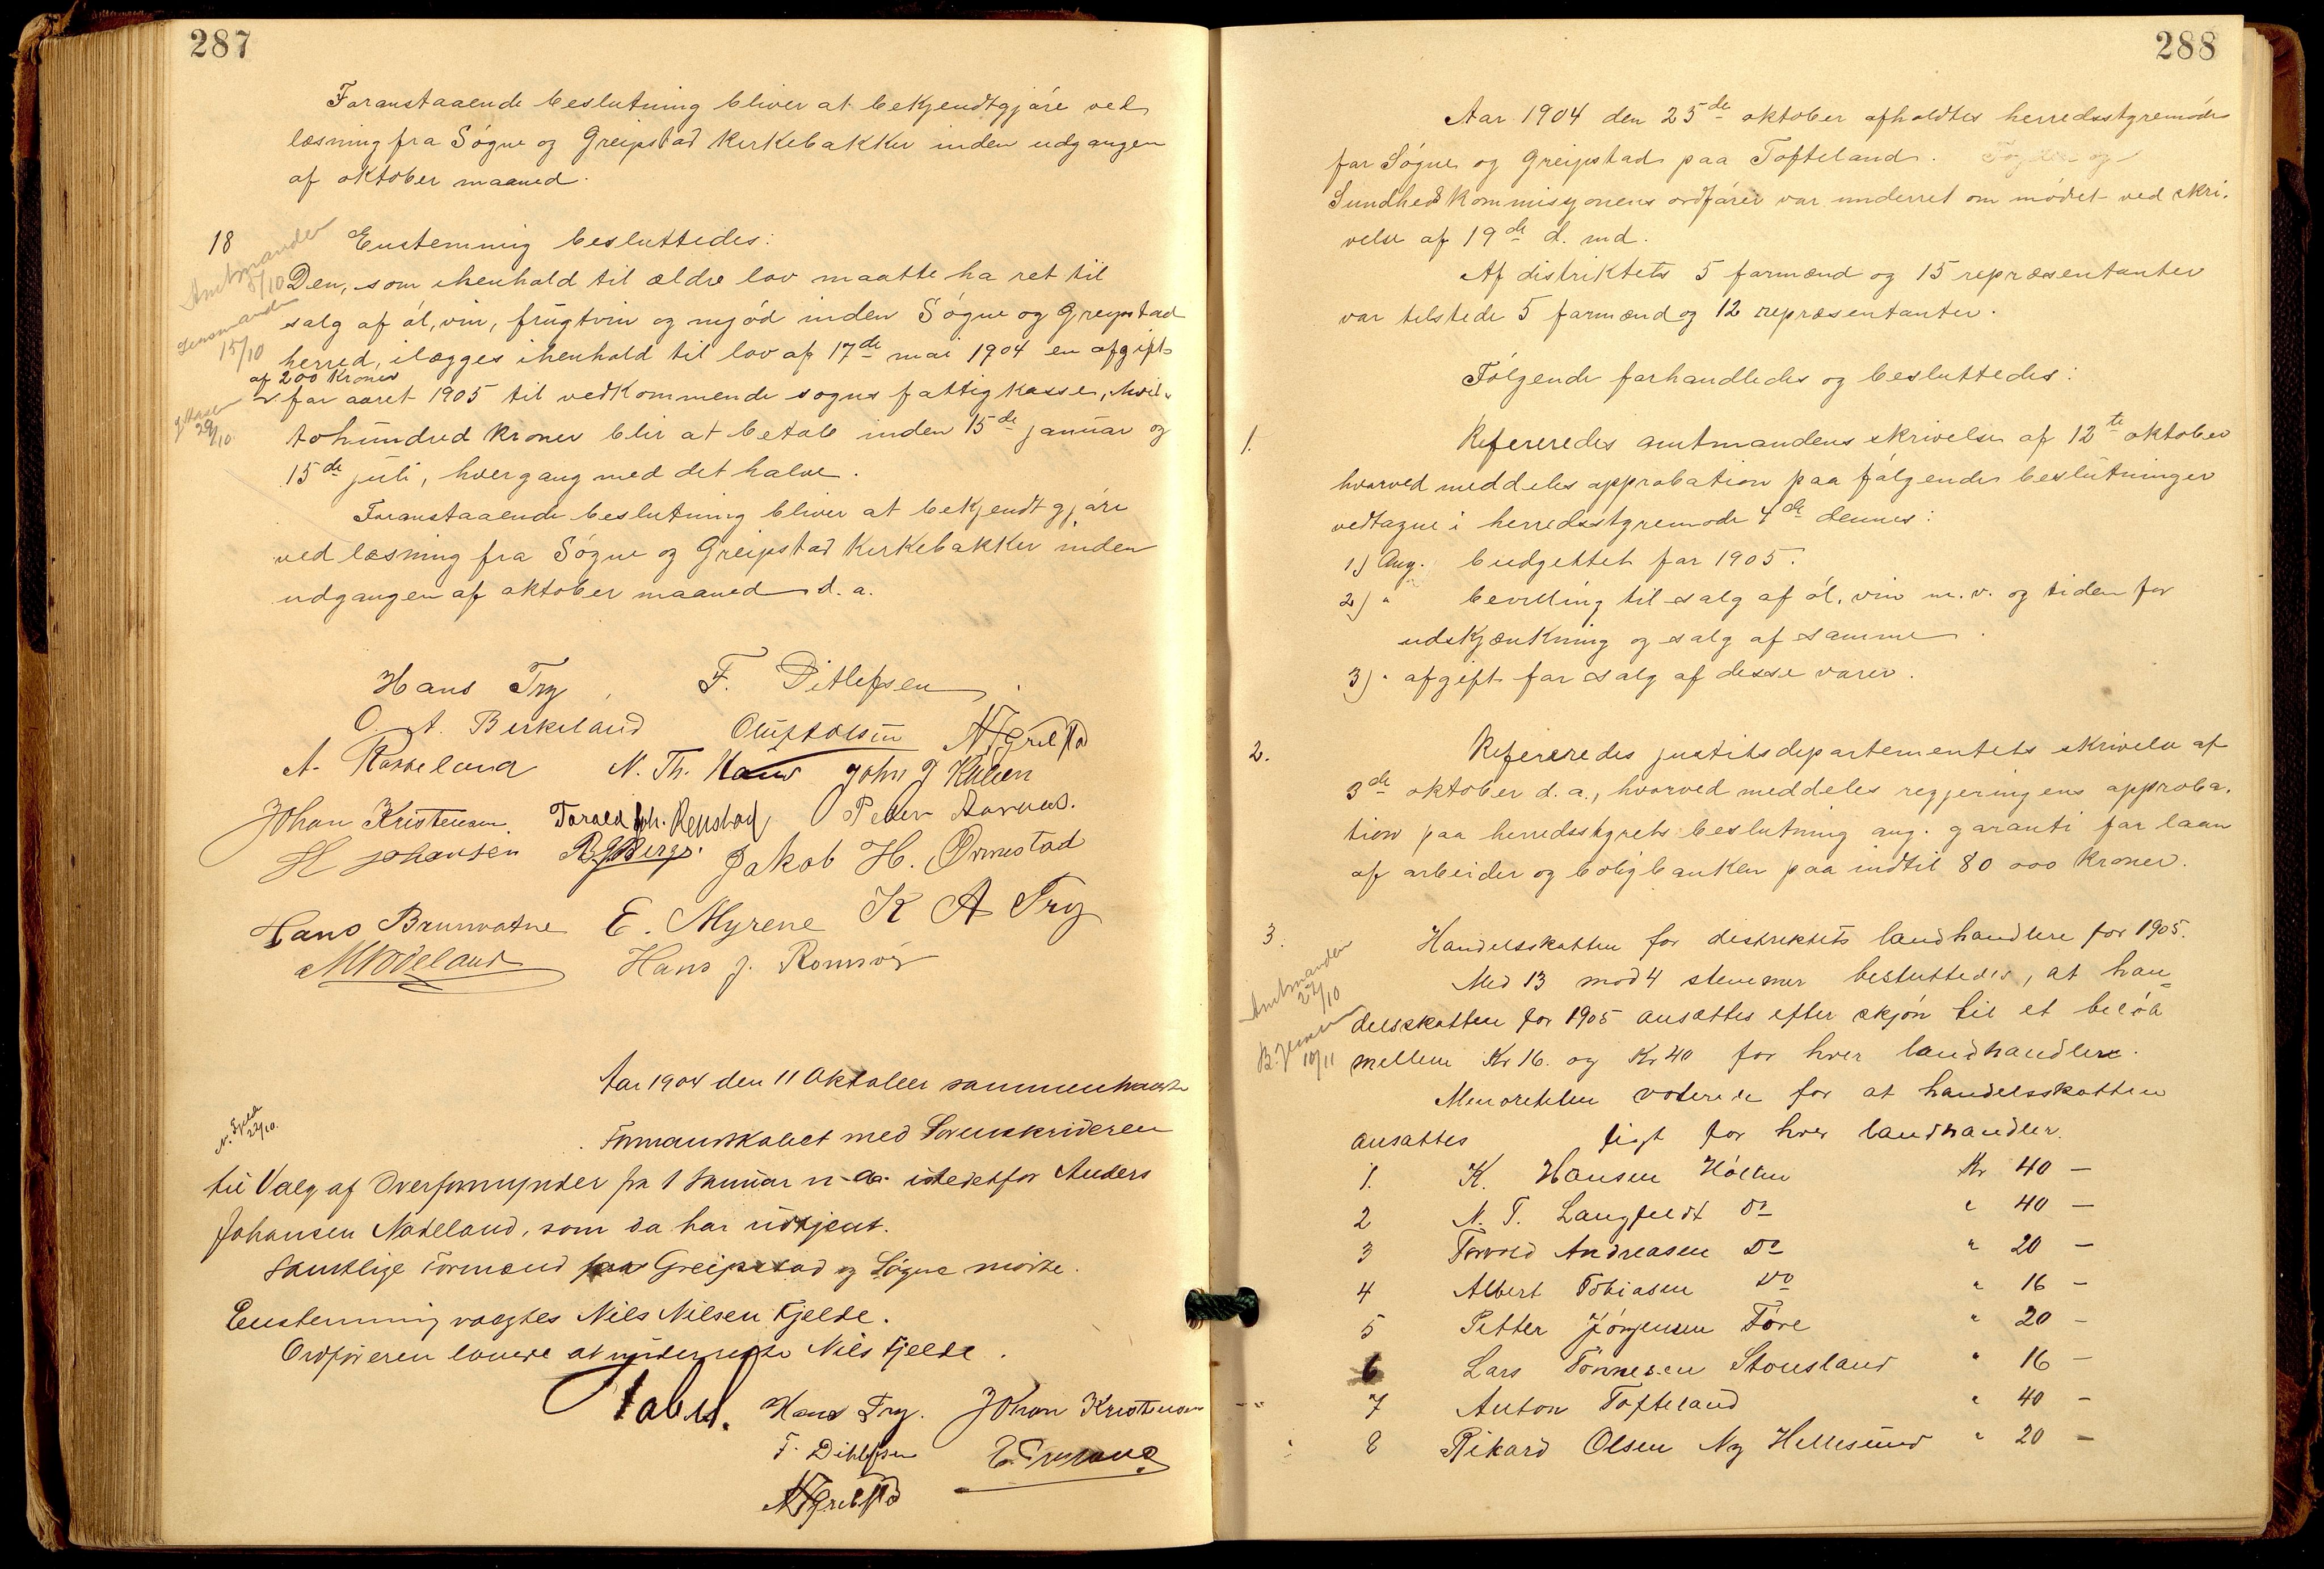 287
Foranstaaende beslutning bliver at bekjendtgjøre ved
læsning fra Søgne og Greipstad kirkebakker inden udgangen
af oktober maaned.
18 Enstemmig besluttedes:
Amtmanden
8/10
Den, som ihenhold til ældre lov maatte ha ret til
salg af øl, vin, frugtvin og mjød inden Søgne og Greipstad
Lensmanden
15/10
herred, ilægges ihenhold til lov af 17de mai 1904 en afgift
af 200 kroner
for aaret 1905 til vedkommende sogns fattigkasse, hvil-
29/10
tohundred kroner blir at betale inden 15de januar og
15de juli, hver gang med det halve.
Foranstaaende beslutning bliver at bekjendtgjøre
ved læsning fra Søgne og Greipstad kirkebakker inden
udgangen af oktober maaned d. a.
Hans Try F. Ditlefsen
O. A. Birkeland Oluf Olsen
A. Rosseland N. Th. John J
Johan Kristensen Torald Joh. Repstad Peder Aarnes.
H Johansen Jakob H. Ormestad
Hans Brunvatne E. Myrene K A Try
Hans J. Romsvig
Aar 1904 den 11 Oktober sammentraadte
N. Fjelde
22/10.
Formandskabet med Sorenskriveren
til Valg af Overformynder fra 1 Januar n. a. istedetfor Anders
Johansen Nodeland, som da har udtjent.
Samtlige Formænd fra Greipstad og Søgne mødte.
Enstemmig valgtes Nils Nilsen Fjelde.
Ordføreren lovede at underrette Nils Fjelde.
Hans Try. Johan Kristensen
F. Ditlefsen E. Myrene
288
Aar 1904 den 25de oktober afholdtes herredsstyremøde
for Søgne og Greipstad paa Tofteland.
Sundhedskommisjonens ordfører var underret om mødet ved skri-
velse af 19de d. md.
Af distriktets 5 formænd og 15 repræsentanter
var tilstede 5 formænd og 12 repræsentanter.
Følgende forhandledes og besluttedes:
1. Refereredes amtmandens skrivelse af 12te oktober
hvorved meddeles approbation paa følgende beslutninger
vedtagne i herredsstyremøde 4de dennes:
1) Ang. budgettet for 1905.
2) " bevilling til salg af øl, vin m. v. og tiden for
udskjænkning og salg af samme
3) " afgift for salg af disse varer.
2. Refereredes justitsdepartementets skrivelse af
3de oktober d. a., hvorved meddeles regjeringens approba-
tion paa herredsstyrets beslutning ang. garanti for laan
af arbeider og boligbanken paa indtil 80 000 kroner.
3. Handelsskatten for distriktets landhandlere for 1905.
Med 13 mod 4 stemmer besluttedes, at han-
Amtmanden
27/10
delsskatten for 1905 ansættes efter skjøn til et beløb
10/11
mellem Kr 16. og Kr 40 for hver landhandlere.
Menoriteten voterede for at handelsskatten
ansattes ligt for hver landhandler.
1. K. Hansen Høllen Kr 40 —
2 N. T. Langfeldt Do " 40 —
3 Torvald Andreasen Do " 20 —
4 Albert Tobiasen Do " 16 —
5 Petter Jørgensen Føre " 20 —
6 Lars Tønnesen Stousland " 16 —
7 Anton Tofteland " 40 —
8 Rikard Olsen Ny Hellesund " 20 —